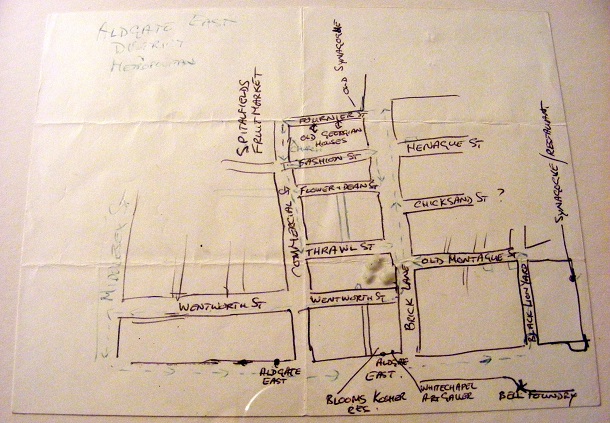 ALDGATE EAST
DISTRICT
METROPOLITAN
SPITALFIELDS
FRUIT MARKET
OLD SYNAGOGUE
FOURNIER ST
OLD GEORGIAN
HOUSES
FASHION ST
HENAGUE ST
FLOWER + DEAN ST
CHICKSAND ST ?
SYNAGOGUE/RESTAURANT
COMMERCIAL ST
MIDDLESEX ST
THRAWL ST
OLD MONTAGUE ST
WENTWORTH ST
WENTWORTH ST
BRICK LANE
BLACK LION YARD
ALDGATE
EAST
ALDGATE
EAST.
BLOOMS KOSHER
RES.
WHITECHAPEL
ART GALLER
BELL FOUNDRY